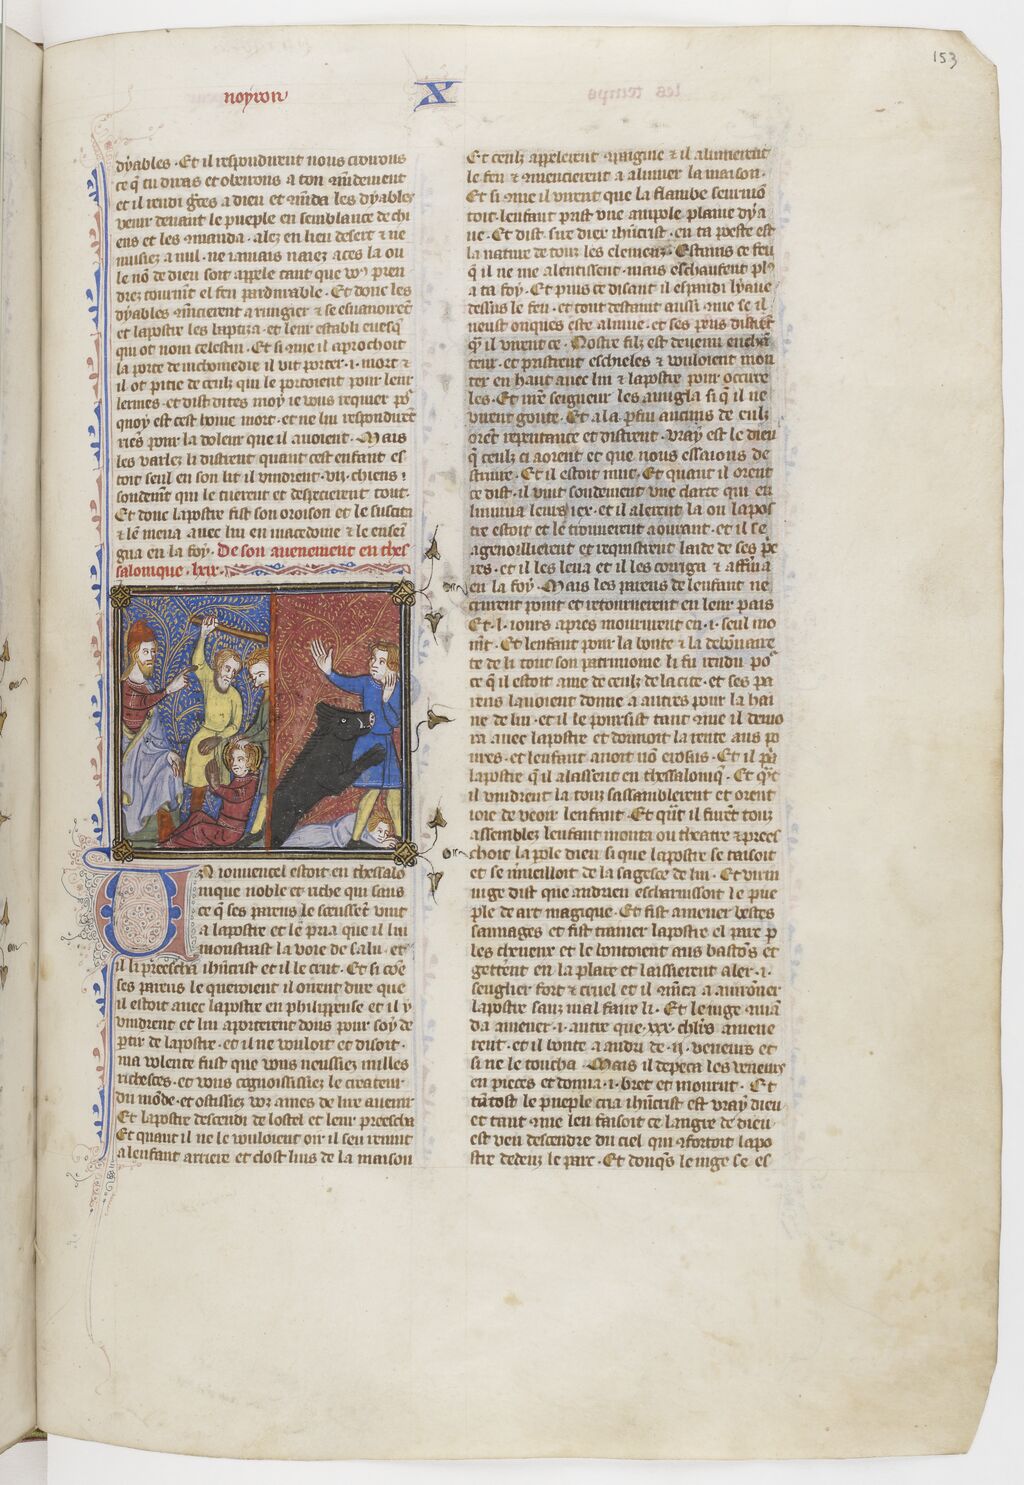 153
noyron
X
dyables · Et il respondirent nous croirons
ce q̄ tu diras et obeirons a ton mandement
et il rendi graces a dieu et māda les dyables
venir deuant le pueple en semblance de chi
ens et les ꝯmanda · alez en lieu desert ⁊ ne
nuisiez a nul · ne iamais naiez aces la ou
le nō de dieu soit appele tant que vo9 pren
drez tourmēt el feu pardurable · Et donc les
dyables ꝯmēcierent a rungier ⁊ se esuanoirēt
et lapostre les baptiza · et leur establi euesq̄
qui ot nom celestin · Et si ꝯme il aprochoit
la porte de nichomedie il vit porter · i · mort ⁊
il ot pitie de ceulz qui le portoient pour leur
lermes · et dist dites moy ie vous requier po2
quoy est cest home mort · et ne lui respondirēt
riēs pour la doleur que il auoient · Mais
les varlez li distrent quant cest enfant es
toit seul en son lit il vindrent · vii · chiens ·
soudemēt qui le tuerent et despecierent tout ·
Et donc lapostre fist son oroison et le suscita
⁊ le mena auec lui en macedone ⁊ le ensei
gna en la foy · De son auenement en thes
salonique · lxix ·
Un iouuencel estoit en thessalo
nique noble et riche qui sans
ce q̄ ses parens le sceussēt vint
a lapostre et le pria que il lui
monstrast la voie de salu · et
il li preescha ihūcrist et il le crut · Et si cōe
ses parens le queroient il oirent dire que
il estoit auec lapostre en philippense et il y
vindrent et lui aporterent dons pour soy de
partir de lapostre · et il ne vouloit et disoit ·
ma volente fust que vous neussiez milles
richesces · et vous cognoissisiez le createur
du mōde · et ostissiez voz ames de lire auenir
Et lapostre descendi de lostel et leur preescha
Et quant il ne le vouloient oir il sen reuint
a lenfant arriere et clost luis de la maison
Et ceulz appelerent ꝯpaignie ⁊ il alumerent
le feu ⁊ ꝯmencierent a alumer la maison ·
Et si ꝯme il virent que la flambe seurmō
toit · lenfant prist vne ampole plaine dya
ue · Et dist · sire dieu ihūcrist · en ta poeste est
la nature de touz les elemenz · Estains ce feu
q̄ il ne me alentissent · mais eschaufent pl9
a ta foy · Et puis ce disant il espandi lyaue
dessus le feu · et tout destaint aussi ꝯme se il
neust onques este alume · et ses parens distrēt
q̄nt il virent ce · Nostre filz est deuenu enchā
teur · et pristrent eschieles ⁊ vouloient mon
ter en haut auec lui ⁊ lapostre pour occire
les · Et nr̄e seigneur les auugla si q̄ il ne
virent goute · Et a la parfin aucuns de eulz
orēt repentance et distrent · vray est le dieu
q̄ ceulz ci aorent et que nous essaions de
struire · Et il estoit nuit · Et quant il orent
ce dist · il vint soudement vne clarte qui en
lumina leurs iex · et il alerent la ou lapos
tre estoit et le trouuerent aourant · et il se
agenoillierent et requistrent laide de ses prie
res · et il les leua et il les corriga ⁊ afferma
en la foy · Mais les parens de lenfant ne
crurent point et retournerent en leur pais
Et · l · iours apres moururent en · i · seul mo
mēt · Et lenfant pour la bonte ⁊ la debōnaire
te de li tout son patrimoine li fu rendu po2
ce q̄ il estoit ame de ceulz de la cite · et ses pa
rens lauoient donne a autres pour la hai
ne de lui · et il le poursist tant ꝯme il demo
ra auec lapostre et donnoit la rente aus po
ures · et lenfant auoit nō erosius · Et il pria
lapostre q̄ il alassent en thessaloniq̄ · Et q̄nt
il vindrent la touz sassamblerent et orent
ioie de veoir lenfant · Et q̄nt il furēt touz
assemblez lenfant monta ou theatre ⁊ prees
choit la pole dieu si que lapostre se taisoit
et se ꝯmeilloit de la sagesce de lui · Et virin
iuge dist que andrieu escharnissoit le pue
ple de art magique · Et fist amener bestes
sauuages et fist trainer lapostre el parc par
les cheueux et le boutoient aus bastōs et
getterēt en la place et laissierent aler · i ·
senglier fort ⁊ cruel et il ꝯmēca a auirōner
lapostre sanz mal faire li · Et le iuge ꝯmā
da amener · i · autre que · xxx · chl̄rs amene
rent · et il bouta a andrieu de · ii · veneurs et
si ne le toucha · Mais il depeca les veneurs
en pieces et donna · i · bret et mourut · Et
tātost le pueple cria ihūcrist est vray dieu
et tant ꝯme len faisoit ce langre de dieu
est veu descendre du ciel qui ꝯfortoit lapo
stre dedenz le parc · Et donques le iuge se es